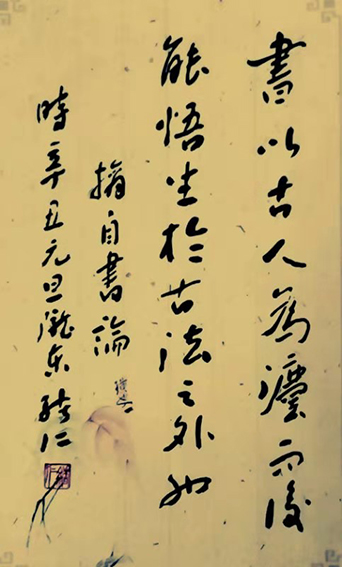 書以古人為灋而後
能悟生於古法之外也
摘自書論
時辛丑元旦隴东